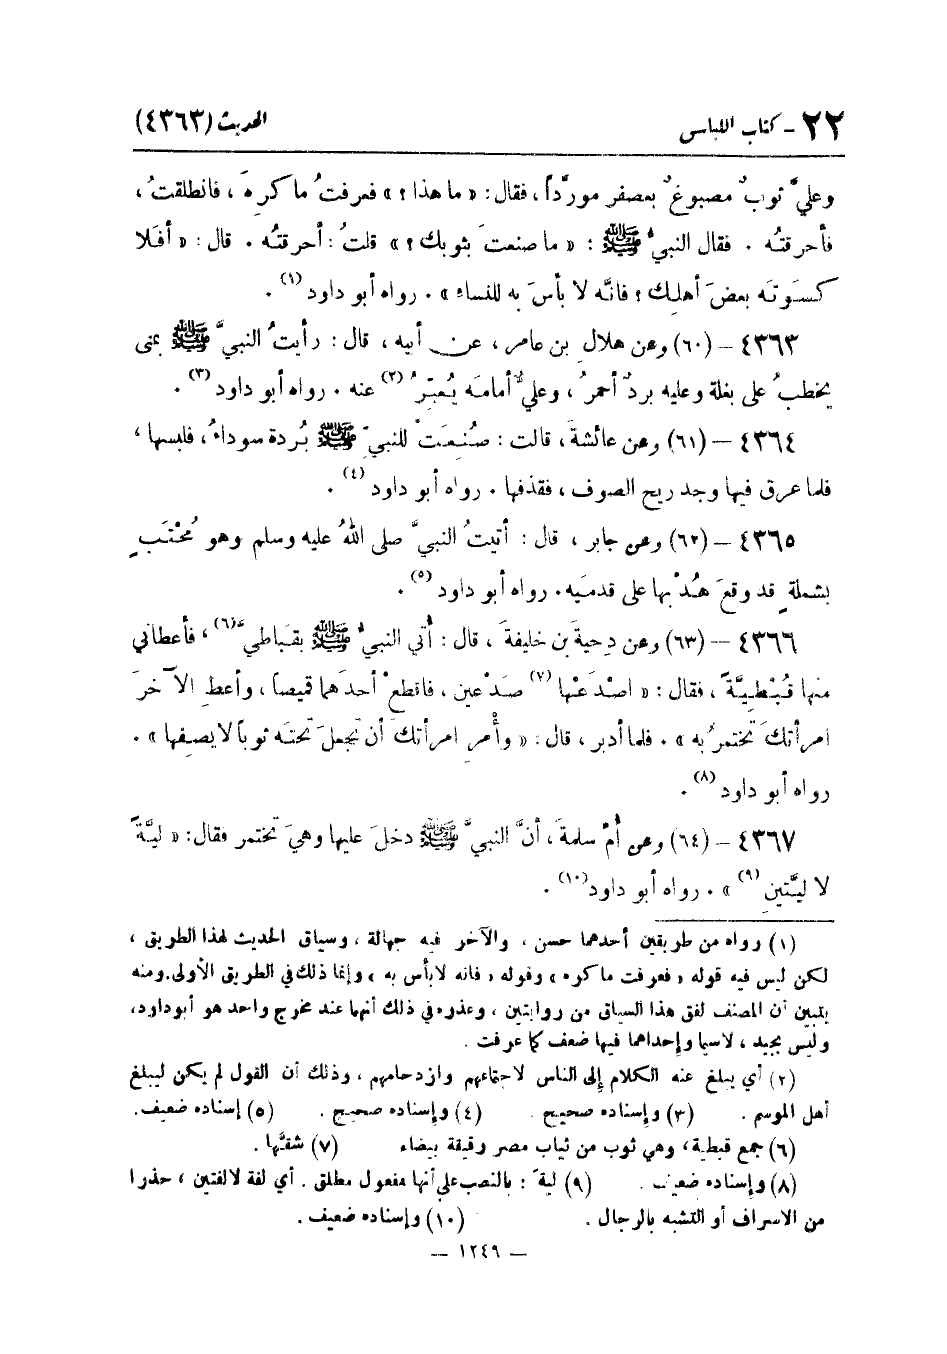 ٢٢ - كتاب اللباس الحديث (٤٣٦٣)
وعليَّ ثوبٌ مصبوغٌ بعصفر مورَّداً، فقال: « ما هذا؟ » فعرفتُ ما كرِهَ، فانطلقتُ،
فأحرقتُه. فقال النبيُّ ﷺ : « ما صنعتَ بثوبك؟ » قلتُ: أحرقتُه. قال: « أفَلا
كسَوتَه بعضَ أهلِك؟ فانَّه لا بأسَ به للنساء ». رواه أبو داود (١).
٤٣٦٣ – (٦٠) وعن هلالِ بن عامر، عن أبيه، قال: رأيتُ النبيَّ ﷺ بمنى
يخطبُ على بغلة وعليه بردٌ أحمرُ، وعليٌّ أمامَه يُعبّرُ (٢) عنه. رواه أبو داود (٣).
٤٣٦٤ – (٦١) وعن عائشةَ، قالت: صُنِعَتْ للنبيِّ ﷺ بُردة سوداءُ، فلبسها،
فلما عرق فيها وجد ريح الصوف، فقذفها. رواه أبو داود (٤).
٤٣٦٥ – (٦٢) وعن جابر، قال: أتيتُ النبيَّ صلى اللهُ عليه وسلم وهو مُحْتَبٍ
بشملةٍ قد وقعَ هُدْبها على قدمَيه. رواه أبو داود (٥).
٤٣٦٦ – (٦٣) وعن دِحيةَ بن خليفةَ، قال: أُتي النبيُّ ﷺ بقَباطيَّ (٦)، فأعطاني
منها قُبْطِيَّةً، فقال: « اصْدَعْها (٧) صَدْعين، فاقطعْ أحدَهما قميصاً، وأعطِ الآخرَ
امرأتكَ تختمرُ به ». فلما أدبر، قال: « وأْمرِ امرأتكَ أن تجعلَ تحتَه ثوباً لا يصِفها ».
رواه أبو داود (٨).
٤٣٦٧ – (٦٤) وعن أُمِّ سلمةَ، أنَّ النبيَّ ﷺ دخلَ عليها وهيَ تختمر فقال: « ليَّةً
لا ليَّتينِ (٩) ». رواه أبو داود (١٠).
(١) رواه من طريقين أحدهما حسن، والآخر فيه جهالة، وسياق الحديث لهذا الطريق،
لكن ليس فيه قوله « فعرفت ما كره » وقوله « فانه لا بأس به » وإنما ذلك في الطريق الأولى. ومنه
يتبين أن المصنف لفق هذا السياق من روايتين، وعذره في ذلك أنهما عند مخرج واحد هو أبو داود،
وليس بجيد، لاسيما وإحداهما فيها ضعف كما عرفت.
(٢) أي يبلغ عنه الكلام إلى الناس لاجتماعهم وازدحامهم، وذلك أن القول لم يكن ليبلغ
أهل الموسم. (٣) وإسناده صحيح. (٤) وإسناده صحيح. (٥) إسناده ضعيف.
(٦) جمع قبطية، وهي ثوب من ثياب مصر رقيقة بيضاء (٧) شقَّها.
(٨) وإسناده ضعيف. (٩) ليةً : بالنصب على أنها مفعول مطلق. أي لفة لا لفتين، حذرا
من الاسراف أو التشبه بالرجال. (١٠) وإسناده ضعيف.
— ١٢٤٩ —